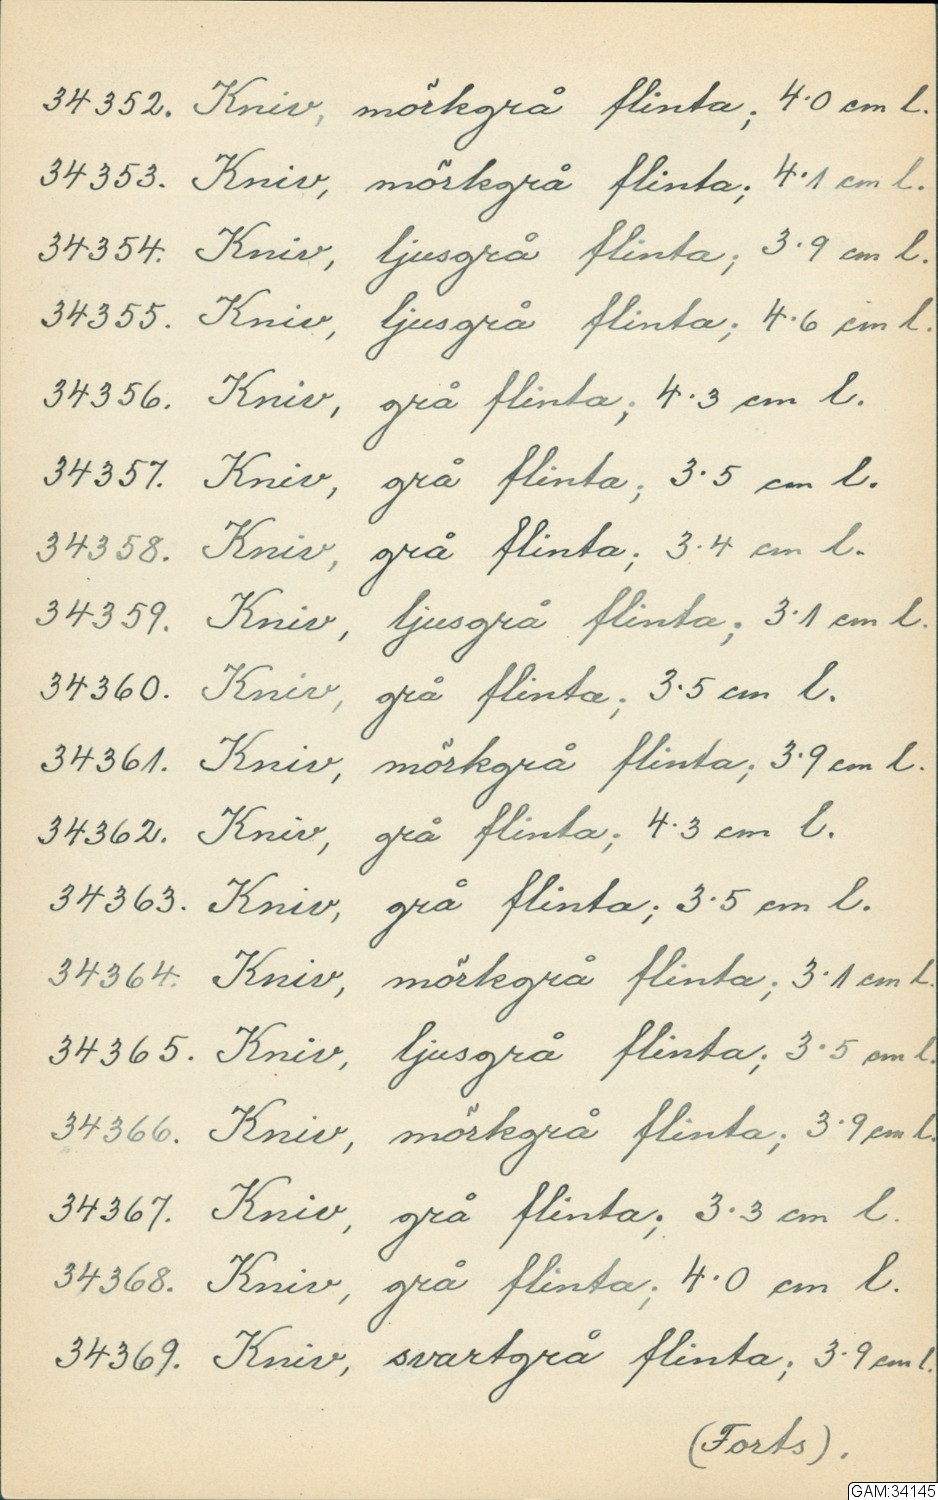 34352. Kniv, mörkgrå flinta; 4.0 cm l.
34353. Kniv, mörkgrå flinta; 4.1 cm l.
34354. Kniv, ljusgrå flinta; 3.9 cm l.
34355. Kniv, ljusgrå flinta; 4.6 cm l.
34356. Kniv, grå flinta; 4.3 cm l.
34357. Kniv, grå flinta; 3.5 cm l.
34358. Kniv, grå flinta; 3.4 cm l.
34359. Kniv, ljusgrå flinta; 3.1 cm l.
34360. Kniv, grå flinta; 3.5 cm l.
34361. Kniv, mörkgrå flinta; 3.9 cm l.
34362. Kniv, grå flinta; 4.3 cm l.
34363. Kniv, grå flinta; 3.5 cm l.
34364. Kniv, mörkgrå flinta; 3.1 cm l.
34365. Kniv, ljusgrå flinta; 3.5 cm l.
34366. Kniv, mörkgrå flinta; 3.9 cm l.
34367. Kniv, grå flinta; 3.3 cm l.
34368. Kniv, grå flinta; 4.0 cm l.
34369. Kniv, svartgrå flinta; 3.9 cm l.
(Forts).
GAM:34145